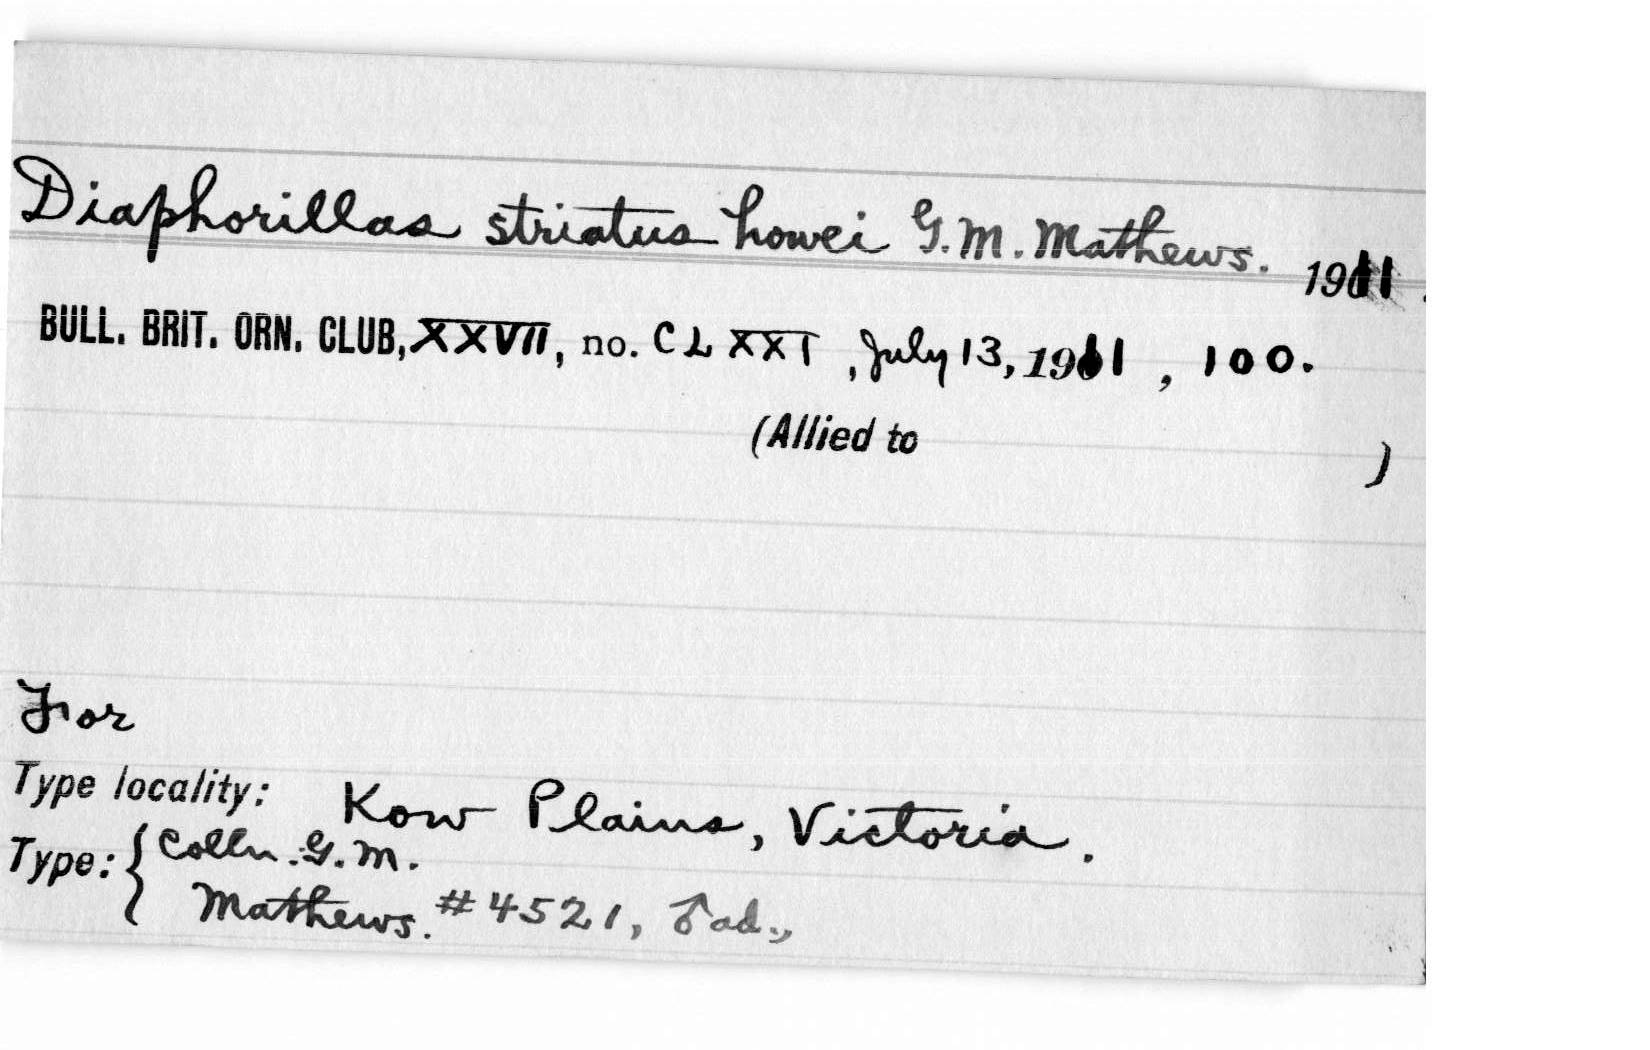 Diaphorillas striatus howei G. M. Mathews. 1911.
BULL. BRIT. ORN. CLUB, XXVII, no. CLXXI, July 13, 1911, 100.
(Allied to )
For
Type locality: Kow Plains, Victoria.
Type: { Colln. G. M.
Mathews. #4521, ♂ ad.,